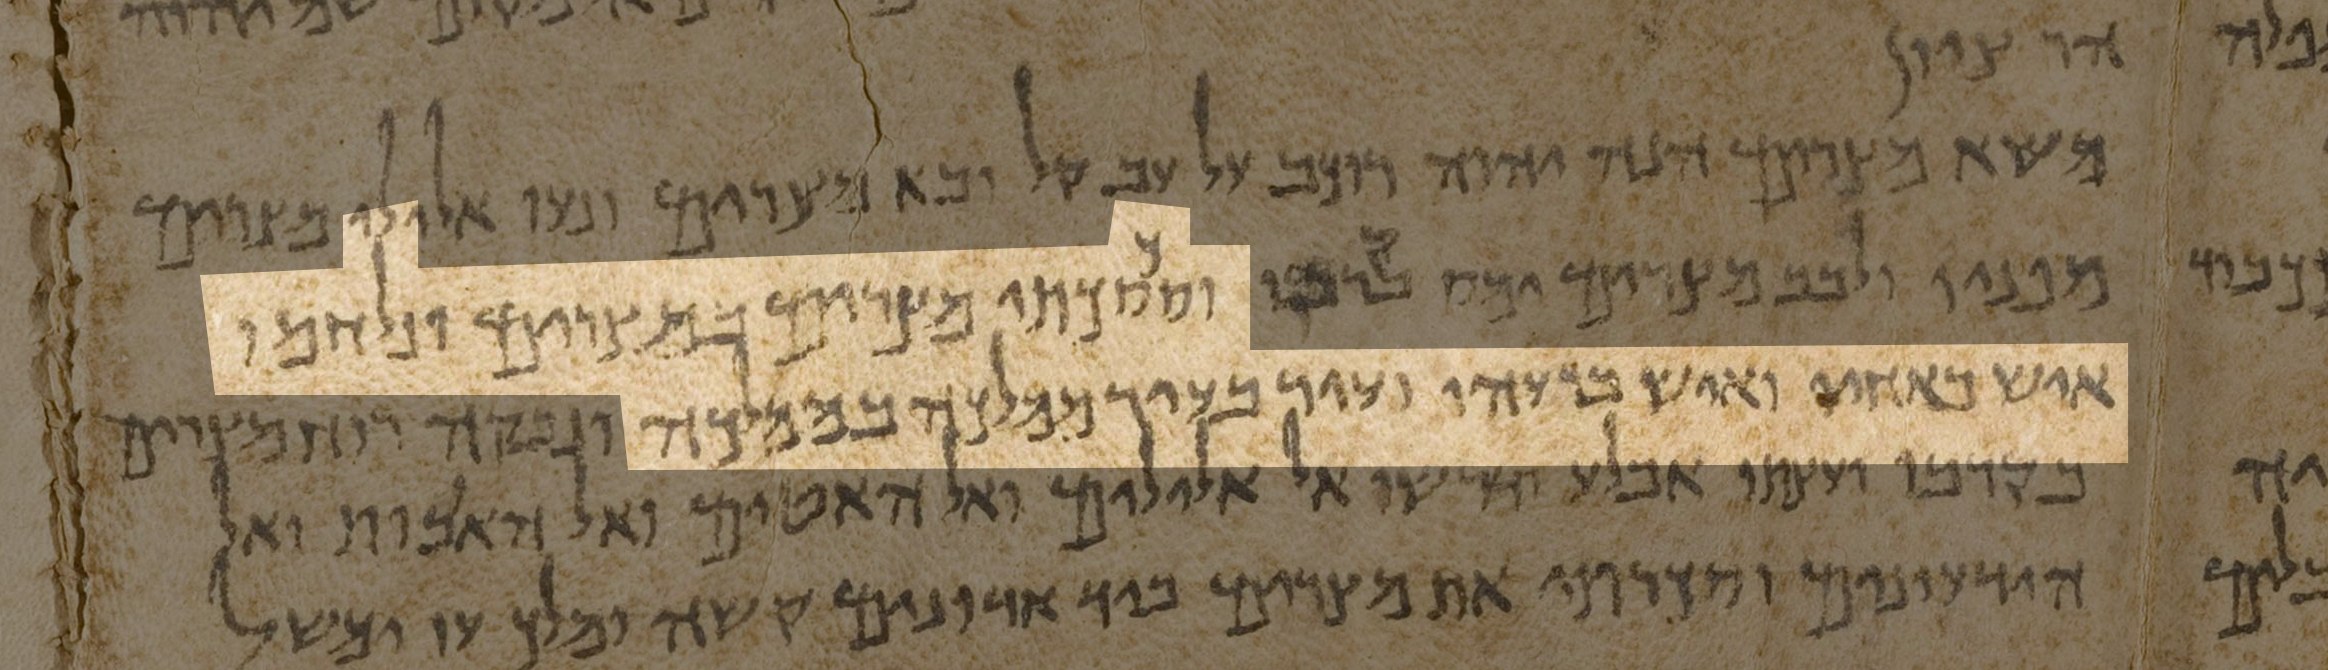 מקום שם יהוה
הר ציון
משא מצרים הנה יהוה רוכב על עב קל ובא מצרים ונעו אלילי מצרים
מפניו ולבב מצרים ימס בקרבו וסכסכתי מצרים במצרים ונלחמו
איש באחיו ואיש ברעהו ועיר בעיר ממלכה בממלכה ונבקה רוח מצרים
בקרבו ועצתו אבלע ודרשו אל אלילים ואל האטים ואל האבות ואל
הידעונים וסכרתי את מצרים ביד אדונים קשה ומלך עז ימשל